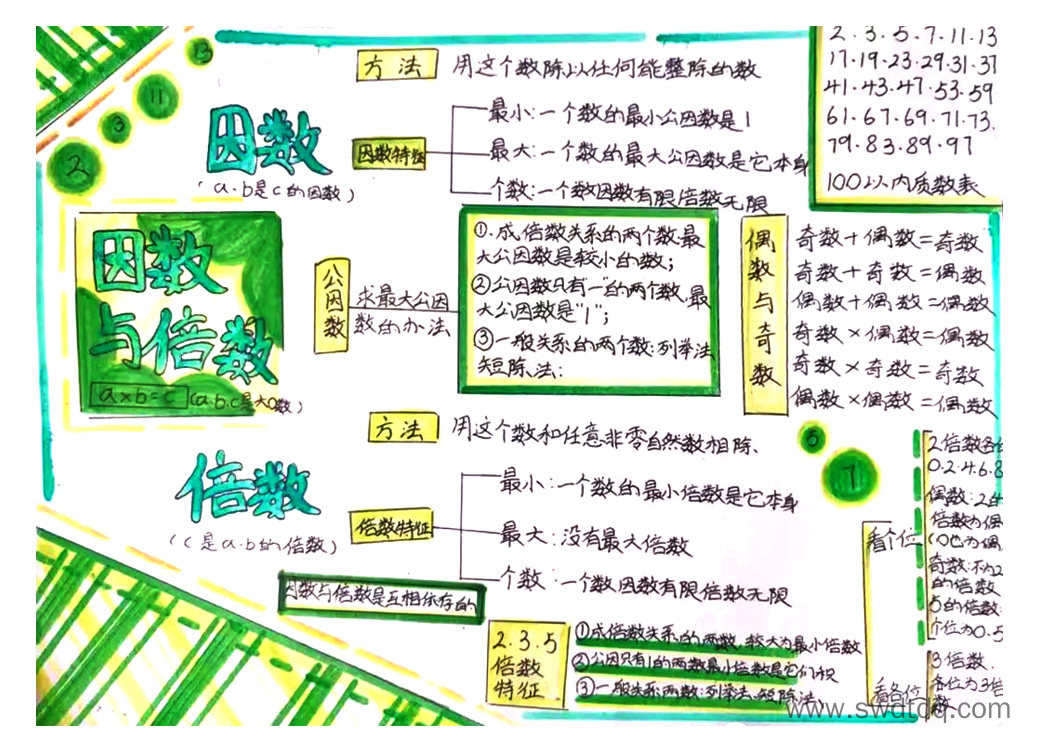 13
11
3
2
方法
用这个数除以任何能整除的数
因数
(a·b是c的因数)
因数特征
最小:一个数的最小公因数是1
最大:一个数的最大公因数是它本身
个数:一个数因数有限倍数无限
2·3·5·7·11·13
17·19·23·29·31·37
41·43·47·53·59
61·67·69·71·73.
79·83·89·97
100以内质数表
因数
与倍数
a×b=c
公因数
求最大公因
数的办法
①.成倍数关系的两个数,最
大公因数是较小的数;
②公因数只有一的两个数,最
大公因数是“1”;
③一般关系的两个数:列举法
短除法:
偶数与奇数
奇数+偶数=奇数
奇数+奇数=偶数
偶数+偶数=偶数
奇数×偶数=偶数
奇数×奇数=奇数
偶数×偶数=偶数
方法
用这个数和任意非零自然数相除、
倍数
(c是a·b的倍数)
倍数特征
最小:一个数的最小倍数是它本身
最大:没有最大倍数
个数:一个数因数有限倍数无限
因数与倍数是互相依存的
2.3.5
倍数
特征
①成倍数关系的两数,较大为最小倍数
②公因只有1的两数最小倍数是它们积
③一般关系两数:列举法、短除法;
7
看个位
2倍数各位
0.2.4.6.8
偶数:2的
倍数为偶
奇数:不为2
的倍数
5的倍数:
个位为0.5
看各位
3倍数.
各位为3倍
数
www.swdtdq.com